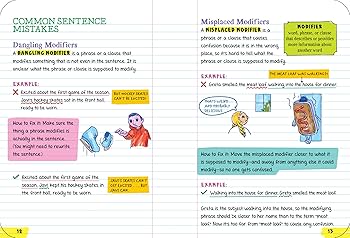 COMMON SENTENCE
MISTAKES
Dangling Modifiers
A DANGLING MODIFIER is a phrase or a clause that
modifies something that is not even in the sentence. It is
unclear what the phrase or clause is supposed to modify.
EXAMPLE:
Excited about the first game of the season,
Jan's hockey skates sat in the front hall,
ready to be worn.
BUT HOCKEY SKATES
CAN'T BE EXCITED!
How to fix it: Make sure the
thing a phrase modifies is
actually in the sentence.
(You might need to rewrite
the sentence.)
Excited about the first game of the
season, Jan kept his hockey skates in
the front hall, ready to be worn.
JAN'S SKATES CAN'T
GET EXCITED . . . BUT
JAN CAN!
12
Misplaced Modifiers
A MISPLACED MODIFIER is a
phrase or a clause that causes
confusion because it is in the wrong
place, so it's hard to tell what the
phrase or clause is supposed to modify.
MODIFIER
word, phrase, or clause
that describes or provides
more information about
another word
EXAMPLE:
THE MEAT LOAF WAS WALKING?!
Greta smelled the meat loaf walking into the house for dinner.
THAT'S WEIRD . . .
AND PROBABLY
DELICIOUS.
How to fix it: Move the misplaced modifier closer to what it
is supposed to modify—and away from anything else it could
modify—so no one gets confused.
EXAMPLE:
Walking into the house for dinner, Greta smelled the meat loaf.
Greta is the subject walking into the house, so the modifying
phrase should be closer to her name than to the term "meat
loaf." Now it's too far from "meat loaf" to cause any confusion.
13